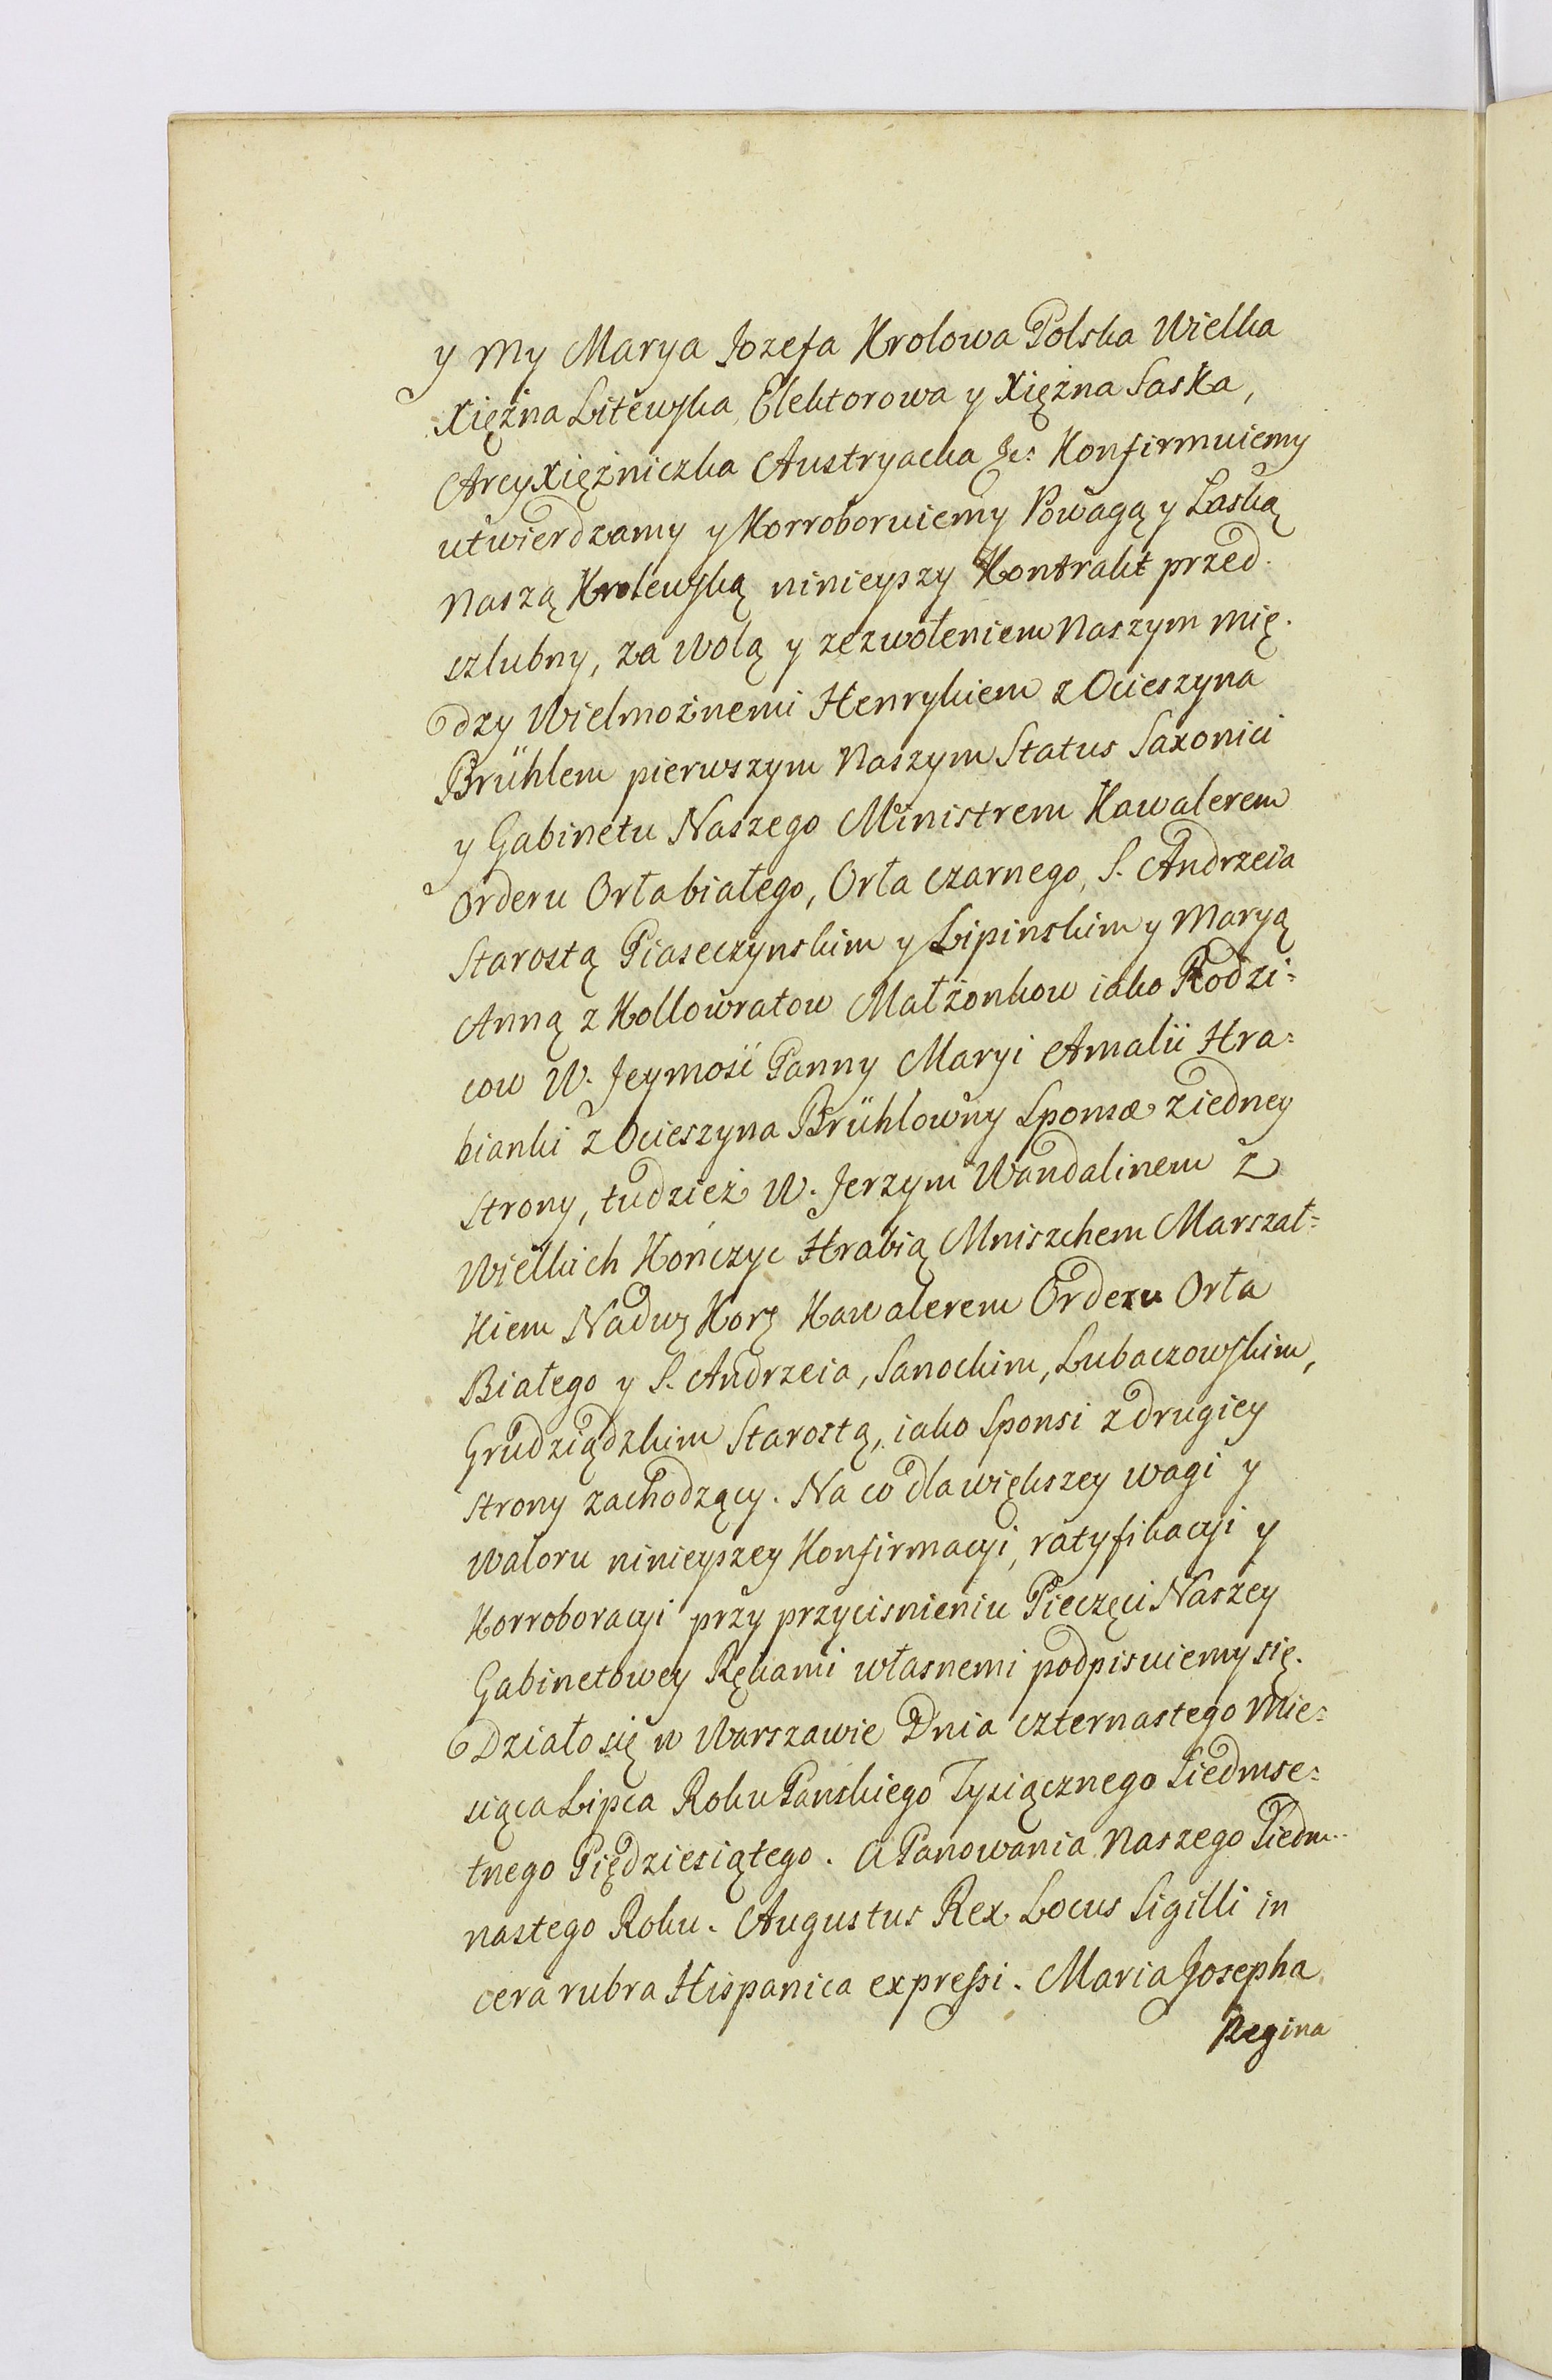 y My Marya Jozefa Krolowa Polska Wielka
Xięźna Litewska, Elektorowa y Xiężna Saska,
ArcyXięźniczka Austryacka &c: Konfirmuiemy
utwierdzamy y Korroboruiemy Powagą y Łaską
Naszą Krolewską ninieyszy Kontrakt przed-
szlubny, za wolą y zezwoleniem Naszym mię-
dzy Wielmożnemi Henrykiem z Ocieszyna
Brühlem pierwszym Naszym Status Saxonici
y Gabinetu Naszego Ministrem Kawalerem
Orderu Orła białego, Orła czarnego, S. Andrzeia
Starostą Piaseczynskim y Lipinskim y Maryą
Anną z Kollowratow Małżonkow iako Rodzi=
cow W. Jeymość Panny Maryi Amalii Hra=
bianki z Ocieszyna Brühlowny Sponsæ z iedney
strony, tudzież W. Jerzym Wandalinem z
Wielkich Kończyc Hrabią Mniszchem Marszał=
kiem Nadwꝫ Korꝫ Kawalerem Orderu Orła
Białego y S. Andrzeia, Sanockim, Lubaczowskim,
Grudziądzkim Starostą, iako Sponsi z drugiey
strony zachodzący. Na co dla większey wagi y
waloru ninieyszey Konfirmacyi, ratyfikacyi y
Korroboracyi przy przycisnieniu Pieczęci Naszey
Gabinetowey Rękami własnemi podpisuiemy się.
Działo się w Warszawie Dnia czternastego Mie=
siąca Lipca Roku Panskiego Tysiącznego Siedmse=
tnego Piędziesiątego. A Panowania Naszego Siedm-
nastego Roku. Augustus Rex Locus Sigilli in
cera rubra Hispanica expressi. Maria Josepha
Regina